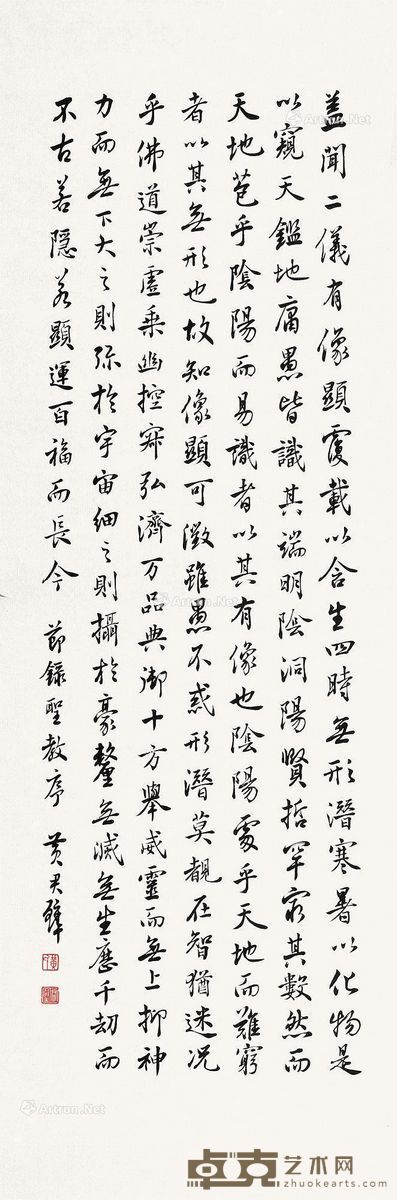 蓋聞二儀有像顯覆載以含生四時無形潛寒暑以化物是
以窺天鑑地庸愚皆識其端明陰洞陽賢哲罕窮其數然而
天地苞乎陰陽而易識者以其有像也陰陽處乎天地而難窮
者以其無形也故知像顯可徵雖愚不惑形潛莫覩在智猶迷況
乎佛道崇虛乘幽控寂弘濟万品典御十方舉威靈而無上抑神
力而無下大之則弥於宇宙細之則攝於豪釐無滅無生歷千劫而
不古若隱若顯運百福而長今 節錄聖教序 黃君璧
Artron.Net
Artron.Net
Artron.Net
Artron.Net
卓克艺术网
zhuokearts.com